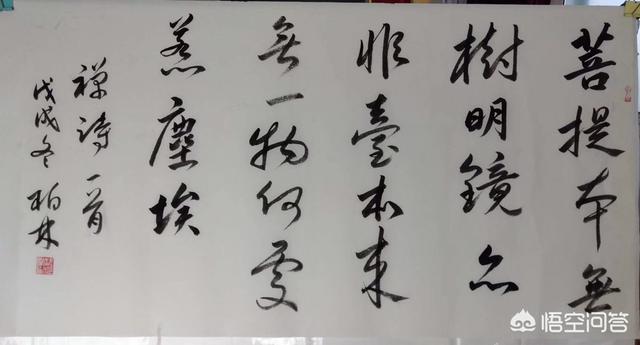 菩提本無
樹明鏡亦
非臺本來
無一物何處
惹塵埃
禪詩一首
戊戌冬柏林
悟空问答